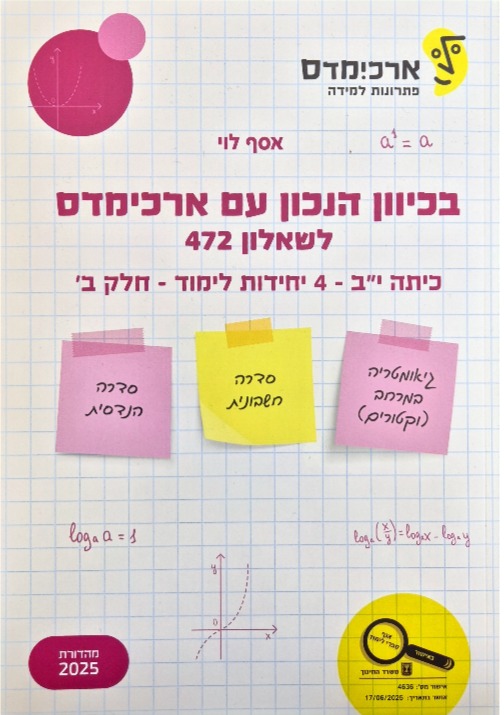 ארכימדס
פתרונות למידה
אסף לוי
a¹ = a
בכיוון הנכון עם ארכימדס
לשאלון 472
כיתה י״ב - 4 יחידות לימוד - חלק ב׳
גיאומטריה
במרחב
(וקטורים)
סדרה
חשבונית
סדרה
הנדסית
logₐ a = 1
logₐ(x/y) = logₐx - logₐy
y
0
x
מהדורת
2025
אגף
ספרי לימוד
באישור
משרד החינוך
אישור מס׳: 4636
אושר בתאריך: 17/06/2025